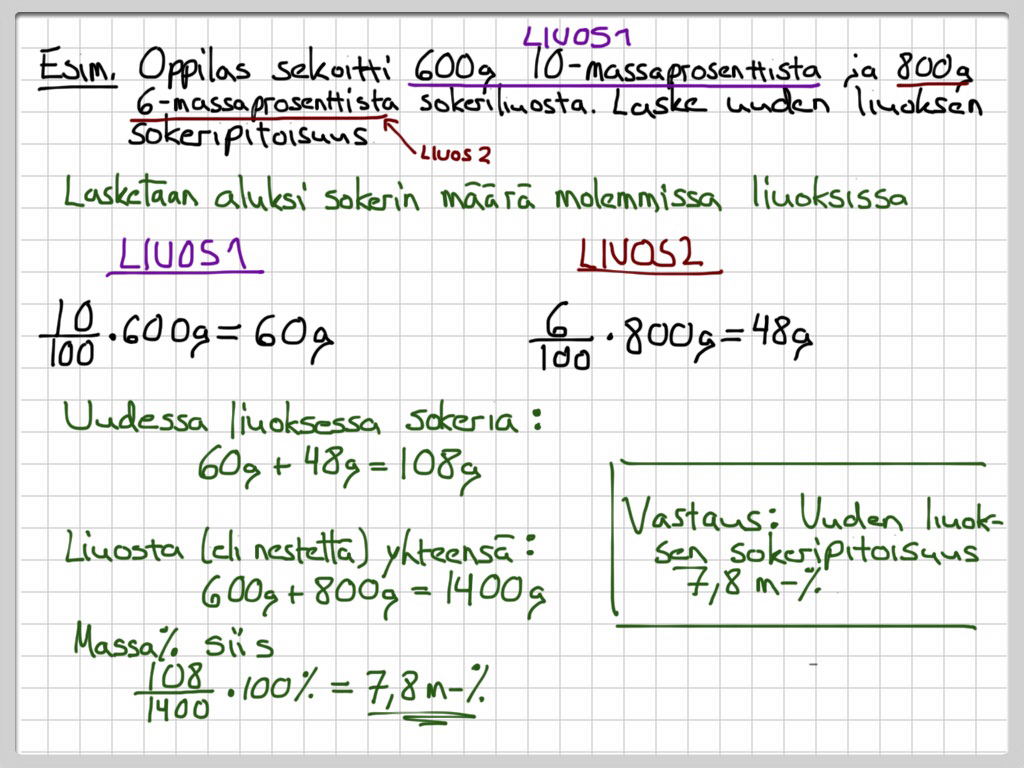 LIUOS1
Esim. Oppilas sekoitti 600g 10-massaprosenttista ja 800g
6-massaprosenttista sokeriliuosta. Laske uuden liuoksen
sokeripitoisuus
LIUOS 2
Lasketaan aluksi sokerin määrä molemmissa liuoksissa
LIUOS1 LIUOS2
10/100 · 600g = 60g 6/100 · 800g = 48g
Uudessa liuoksessa sokeria:
60g + 48g = 108g
Liuosta (eli nestettä) yhteensä:
600g + 800g = 1400g
Massa% siis
108/1400 · 100% = 7,8 m-%
Vastaus: Uuden liuok-
sen sokeripitoisuus
7,8 m-%